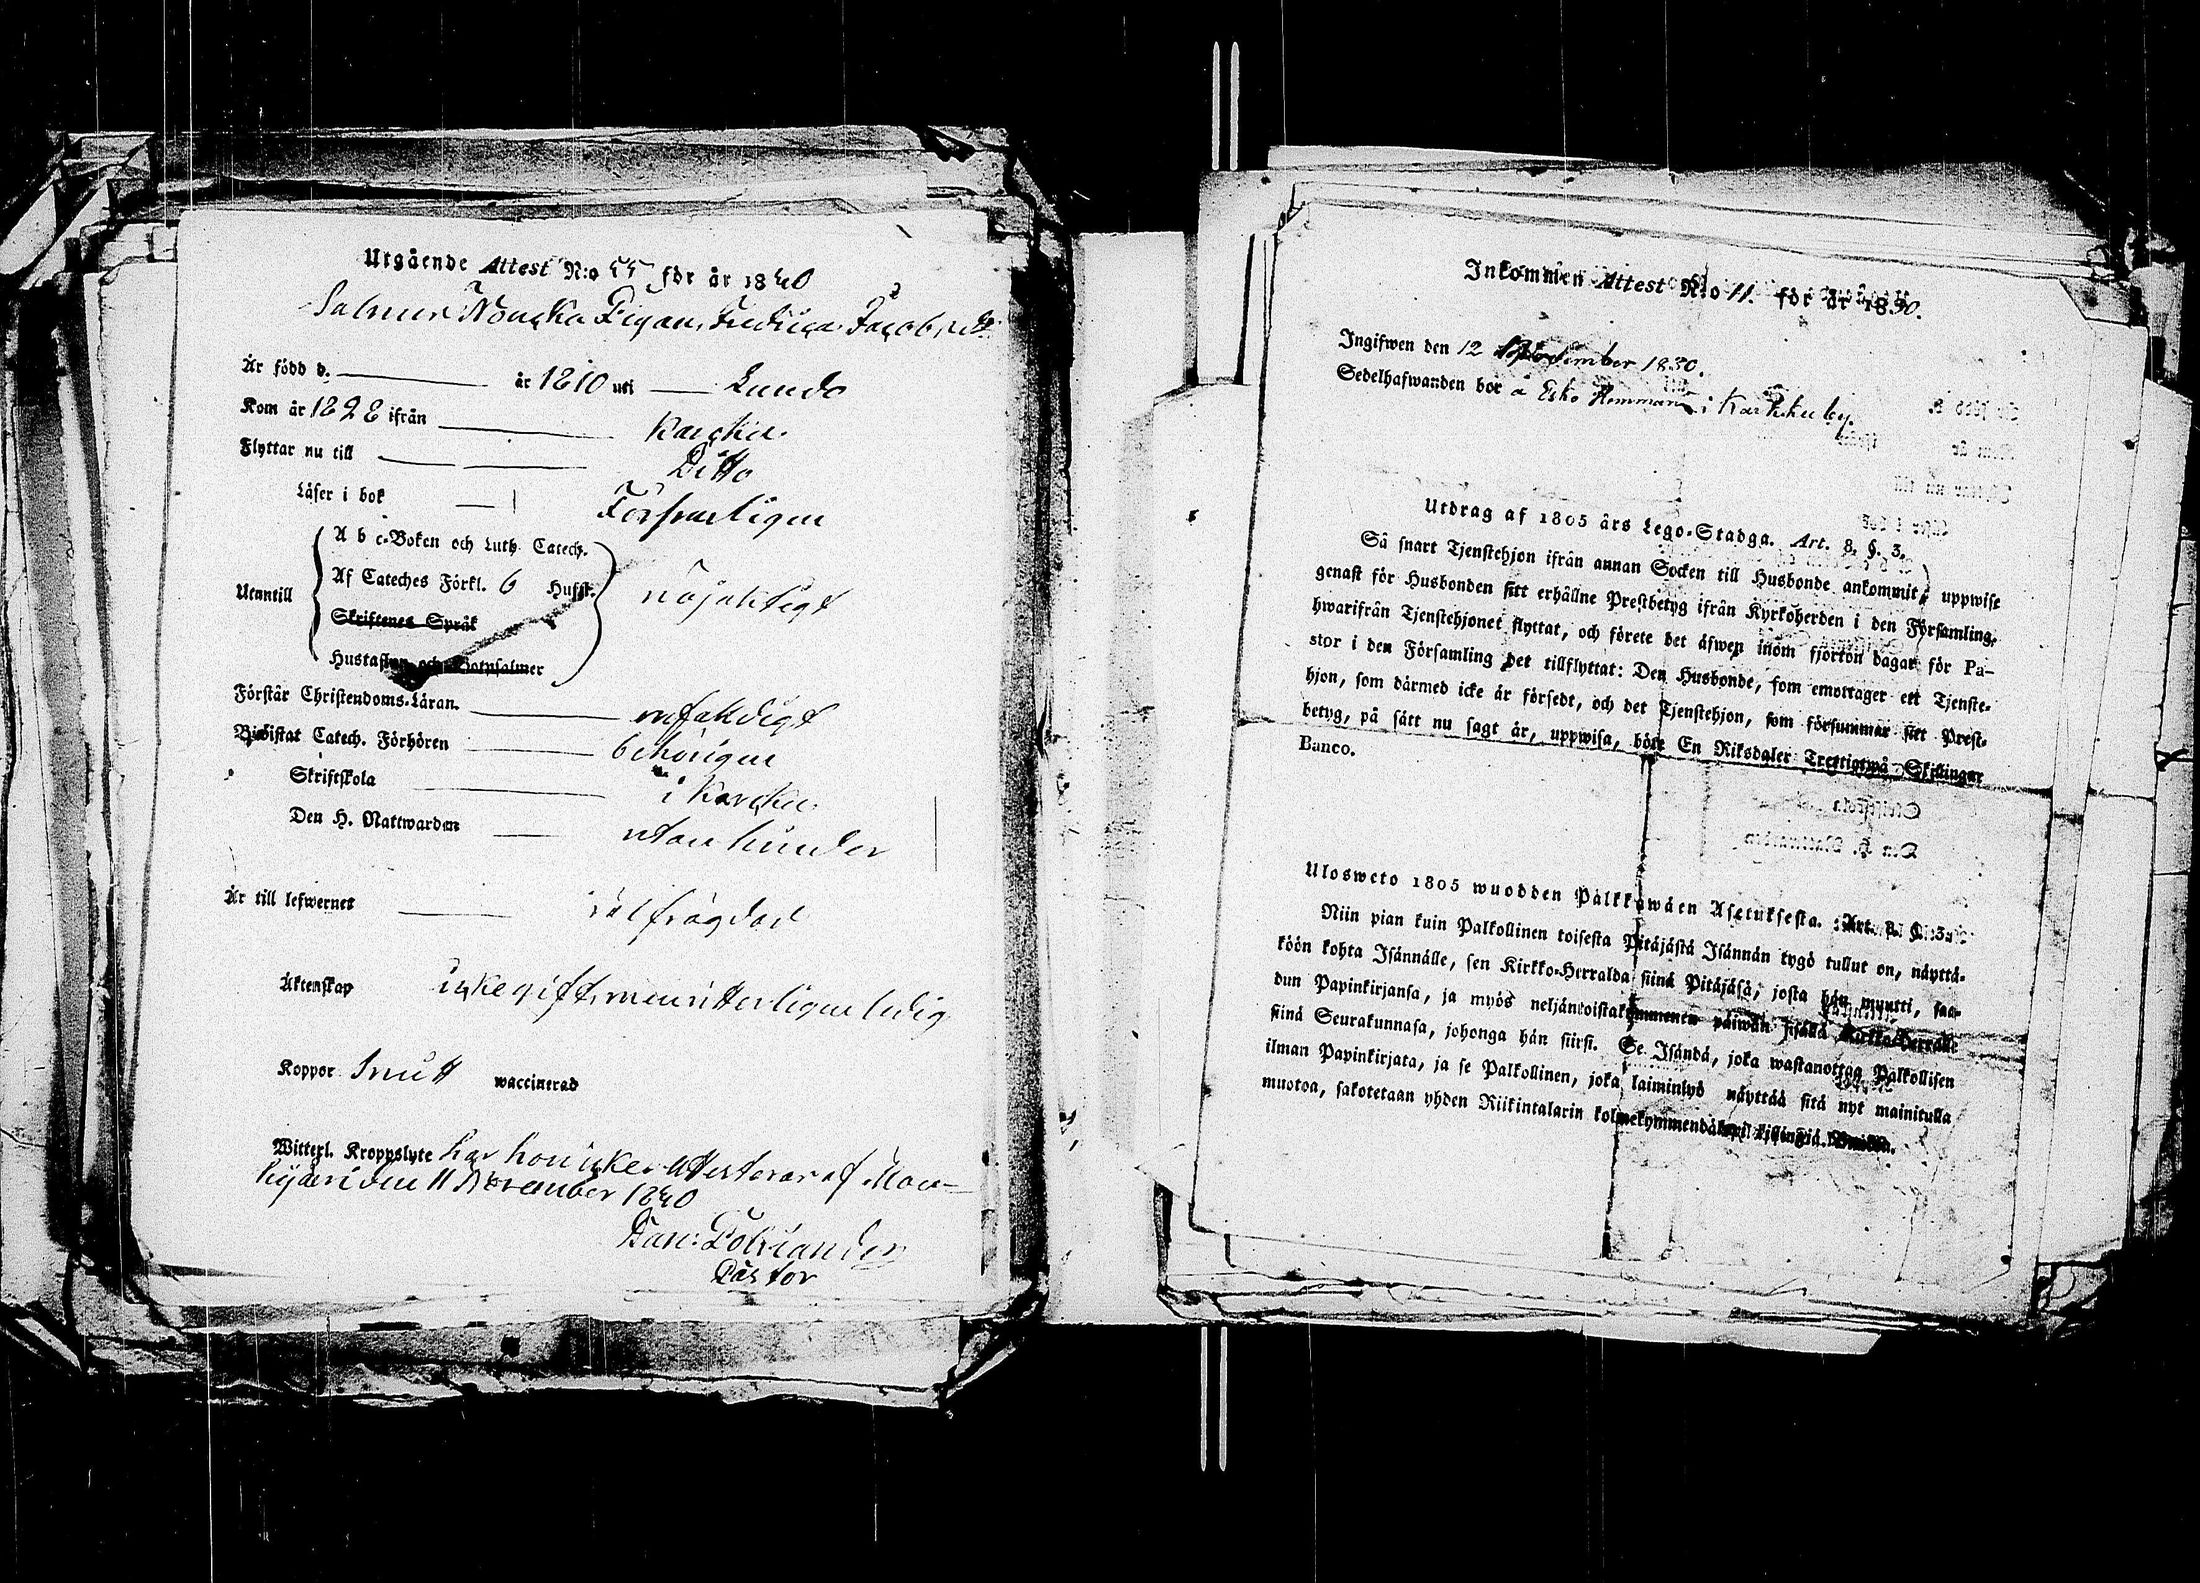 Utgående Attest N:o 55 för år 1840
Pigan Jacobsdr
Är född d. år 1810 uti Lundo
Kom år 1828 ifrån Karcku
Flyttar nu till Ditto
Läser i bok Försvarligen
A b c-Boken och Luth. Catech.
Utantill Af Cateches Förkl. 6 Hufst. nöjaktigt
Skriftenes Språk
Hustaflan och Botpsalmer
Förstår Christendoms-Läran. enfaldigt
Biwistat Catech. Förhören behörigen
Skriftskola i Karcku
Den H. Nattwarden utan hinder
Är till lefwernet välfrägdad
Äktenskap icke gift, ledig
Koppor waccinerad
Witterl. Kroppslyte har hon icke. Attesterar af Mou-
hijärvi den 11 November 1840
Pastor
Inkommen Attest N:o 11. för år 1830.
Ingifwen den 12 1830.
Sedelhafwanden bor å Esko Hemman i Karkku by.
Utdrag af 1805 års Lego-Stadga. Art. 8. §. 3.
Så snart Tjenstehjon ifrån annan Socken till Husbonde ankommit, uppwise
genast för Husbonden sitt erhållne Prestbetyg ifrån Kyrkoherden i den Församling,
hwarifrån Tjenstehjonet flyttat, och förete det äfwen inom fjorton dagar för Pa-
stor i den Församling det tillflyttat: Den Husbonde, som emottager ett Tjenste-
hjon, som därmed icke är försedt, och det Tjenstehjon, som försummar sitt Prest-
betyg, på sätt nu sagt är, uppwisa, böte En Riksdaler Trettiotwå Skillingar
Banco.
Ulosweto 1805 wuodden Palkkawäen Asetuksesta. Art. 8. §. 3.
Niin pian kuin Palkollinen toisesta Pitäjästä Isännän tygö tullut on, näyttä-
köön kohta Isännälle, sen Kirkko-Herralda siinä Pitäjäsä, josta hän muutti, saa-
dun Papinkirjansa, ja myös neljäntoistakymmenen päiwän sisällä Kirkko-Herralle
siinä Seurakunnasa, johonga hän siirsi. Se Isändä, joka wastanottaa Palkollisen
ilman Papinkirjata, ja se Palkollinen, joka laiminlyö näyttää sitä nyt mainitulla
muotoa, sakotetaan yhden Riikintalarin